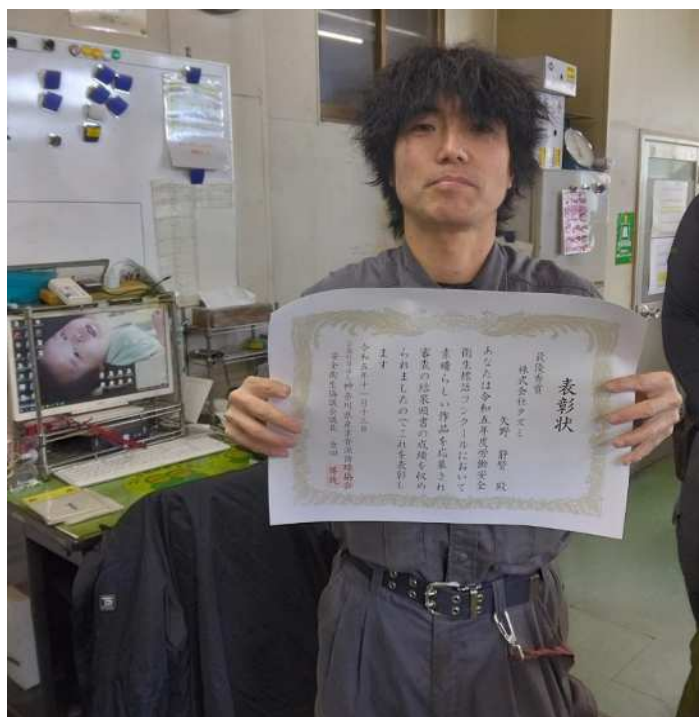 表彰状
最優秀賞
株式会社タズミ
矢野 静賢 殿
あなたは令和五年度労働安全
衛生標語コンクールにおいて
素晴らしい作品を応募され
審査の結果頭書の成績を収め
られましたのでこれを表彰し
ます
令和五年十一月十三日
神奈川県産業資源循環協会
安全衛生協議会議長